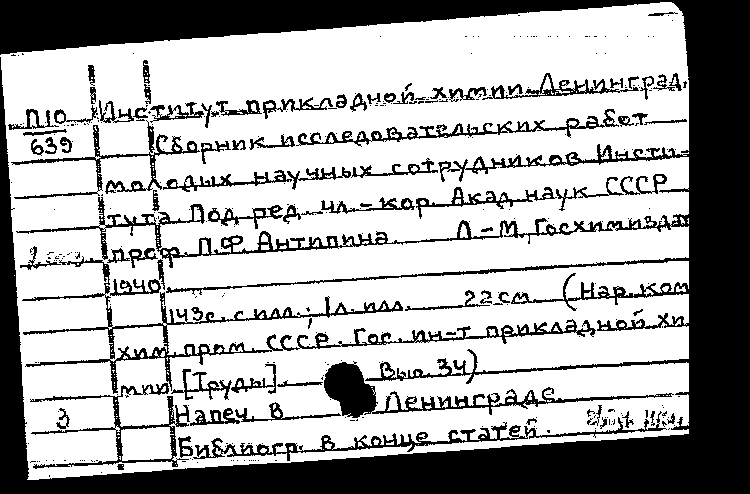 П10 Институт прикладной химии. Ленинград.
639 Сборник исследовательских работ
молодых научных сотрудников Инсти-
тута. Под ред. чл.-кор. Акад. наук СССР
2 экз. проф. П.Ф. Антипина. Л.-М., Госхимиздат
1940.
143с. с илл.; 1л. илл. 22см. (Нар. ком.
хим. пром. СССР. Гос. ин-т прикладной хи
мии [Труды]. Вып. 34)
3 Напеч. в Ленинграде.
Библиогр. в конце статей.